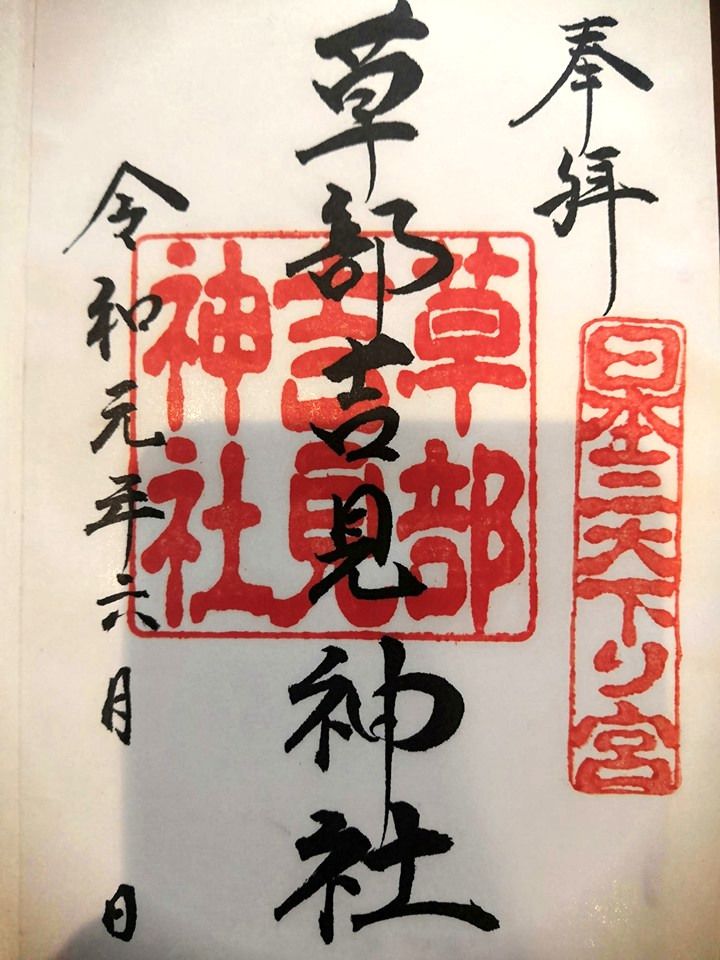 奉拝
日本三大下り宮
草部吉見神社
草部
吉見
神社
令和元年六月 日